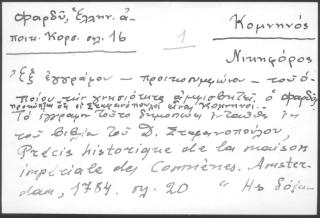 Φαρδύ, Ἑλλην. ἀ-
ποικ. Κορσ. σλ. 16
Κομνηνός
1
Νικηφόρος
Ἐξ ἐγγράφου — προικοσυμφώνου — τοῦ ὁ-
ποίου τὴν γνησιότητα ἀμφισβητεῖ ὁ Φαρδύς
οἱ Στεφανόπουλοι εἶναι Κομνηνοί.
Τὸ ἔγγραφον τοῦτο δημοσιεύει ἐκ
τοῦ βιβλίου τοῦ Δ. Στεφανοπούλου,
Précis historique de la maison
impériale des Comnènes. Amster-
dam, 1784. σλ. 20 "